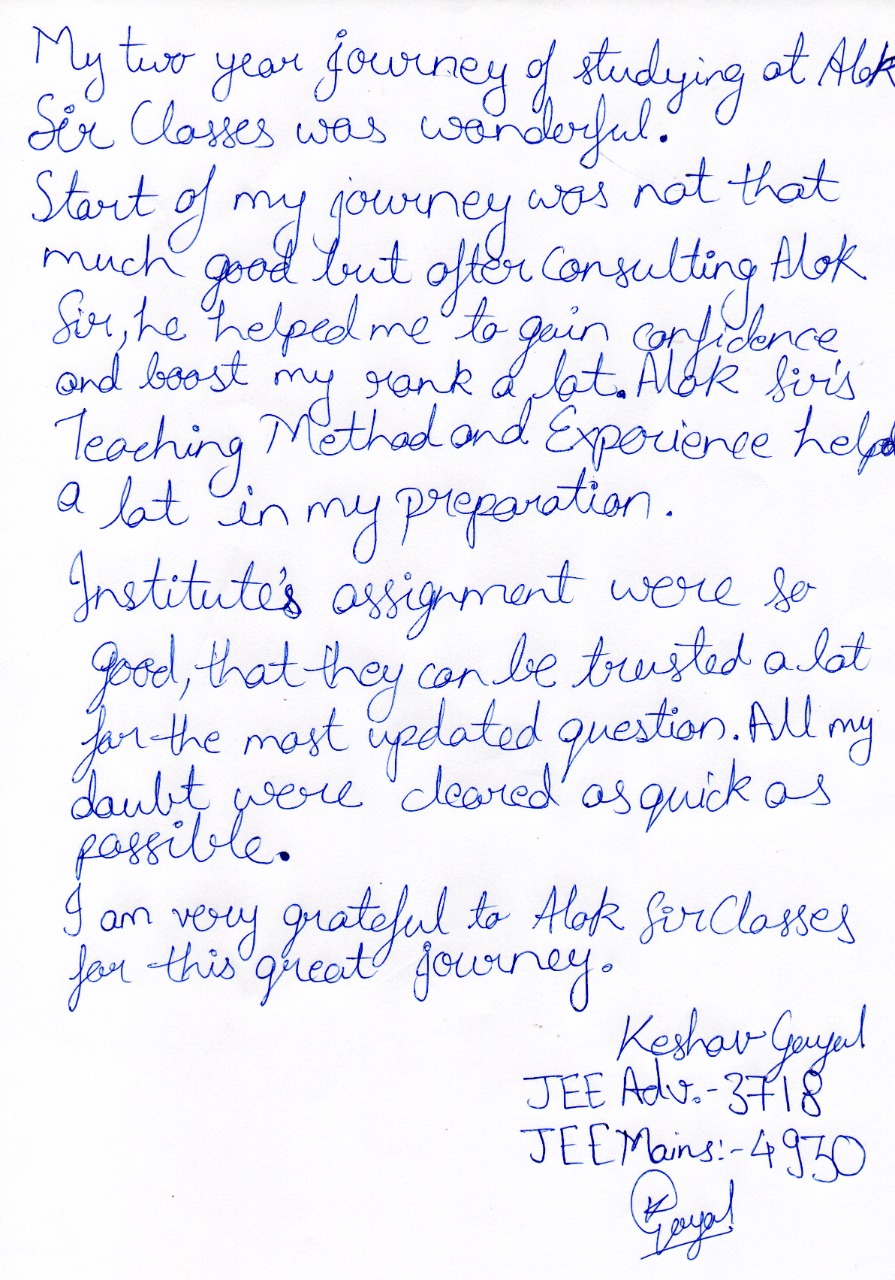 My two year journey of studying at Alok
Sir Classes was wonderful.
Start of my journey was not that
much good but after consulting Alok
Sir, he helped me to gain confidence
and boost my rank a lot. Alok Sir's
Teaching Method and Experience helped
a lot in my preparation.
Institute's assignment were so
good, that they can be trusted a lot
for the most updated question. All my
doubt were cleared as quick as
possible.
I am very grateful to Alok Sir Classes
for this great journey.
Keshav Goyal
JEE Adv.-3718
JEE Mains:-4930
K Goyal